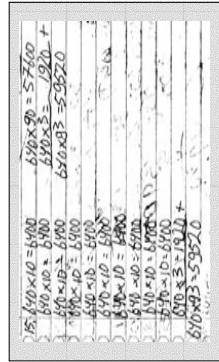 15. 640×10=6400
640×10=6400
640×10=6400
640×10=6400
640×10=6400
640×10=6400
640×10=6400
640×10=6400
640×10=6400
640×3=1920 +
640×93=59520
640×90=57600
640×3=1920 +
640×93=59520